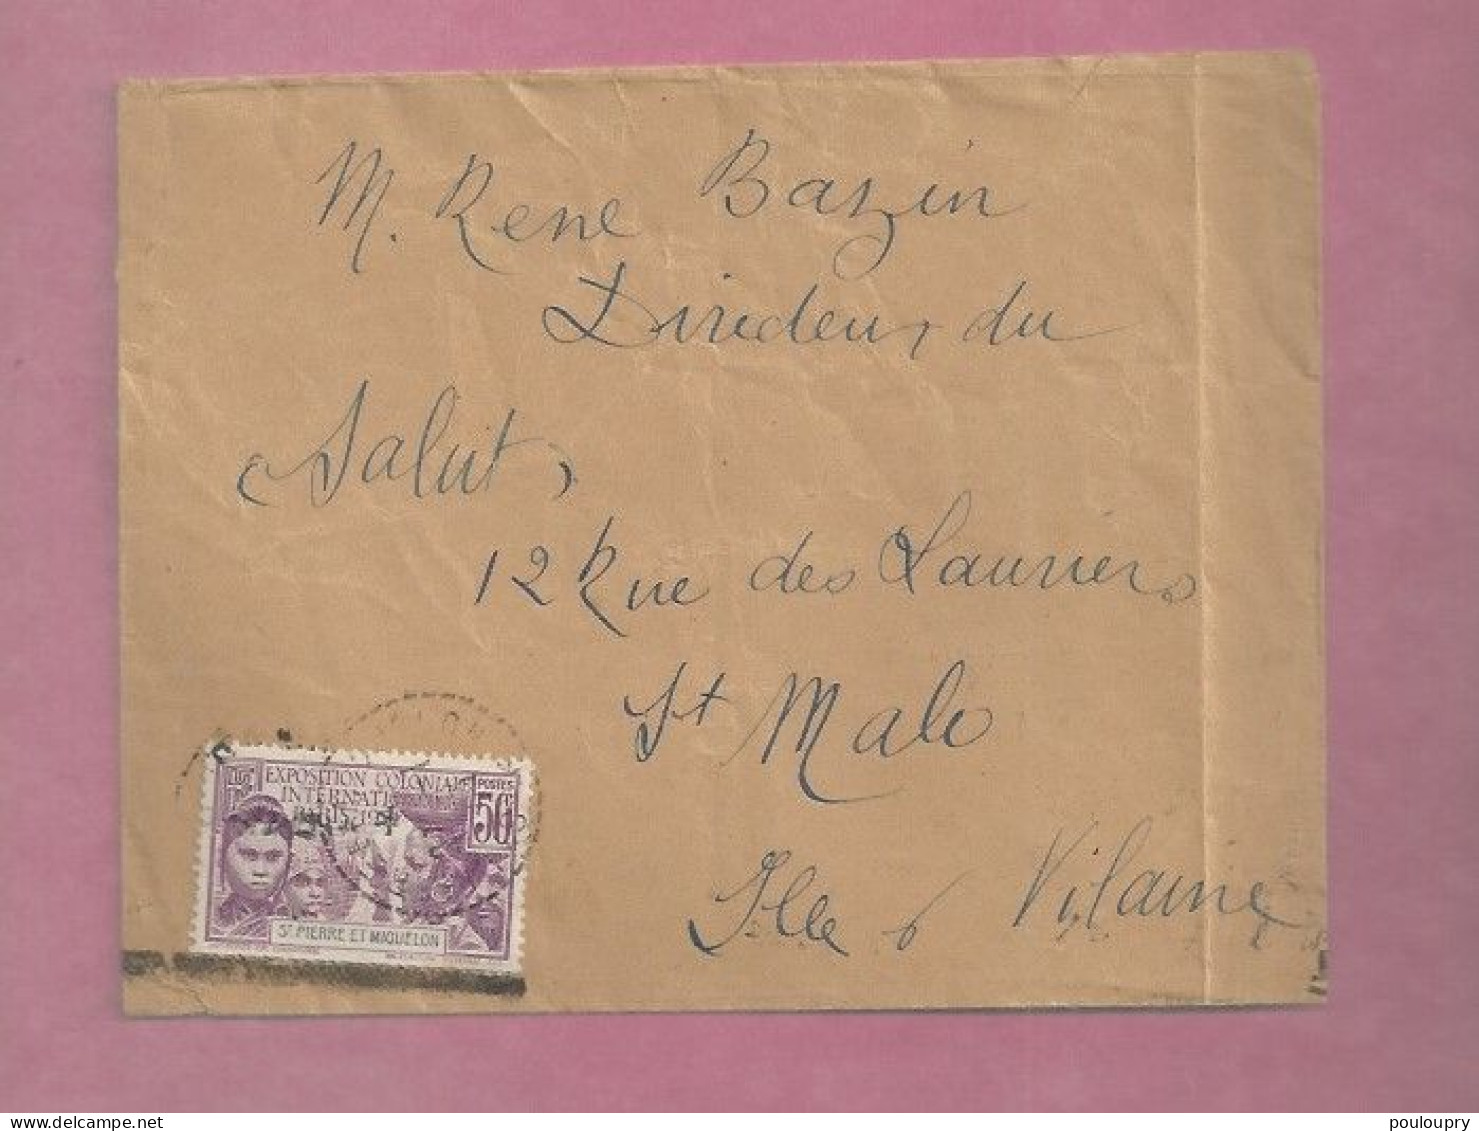 M. René Bazin
Directeur du
Salut
12 Rue des Lauriers
St Malo
Ille & Vilaine
EXPOSITION COLONIALE
INTERNATI
PARIS 19
POSTES
50
ST PIERRE ET MIQUELON
pouloupry